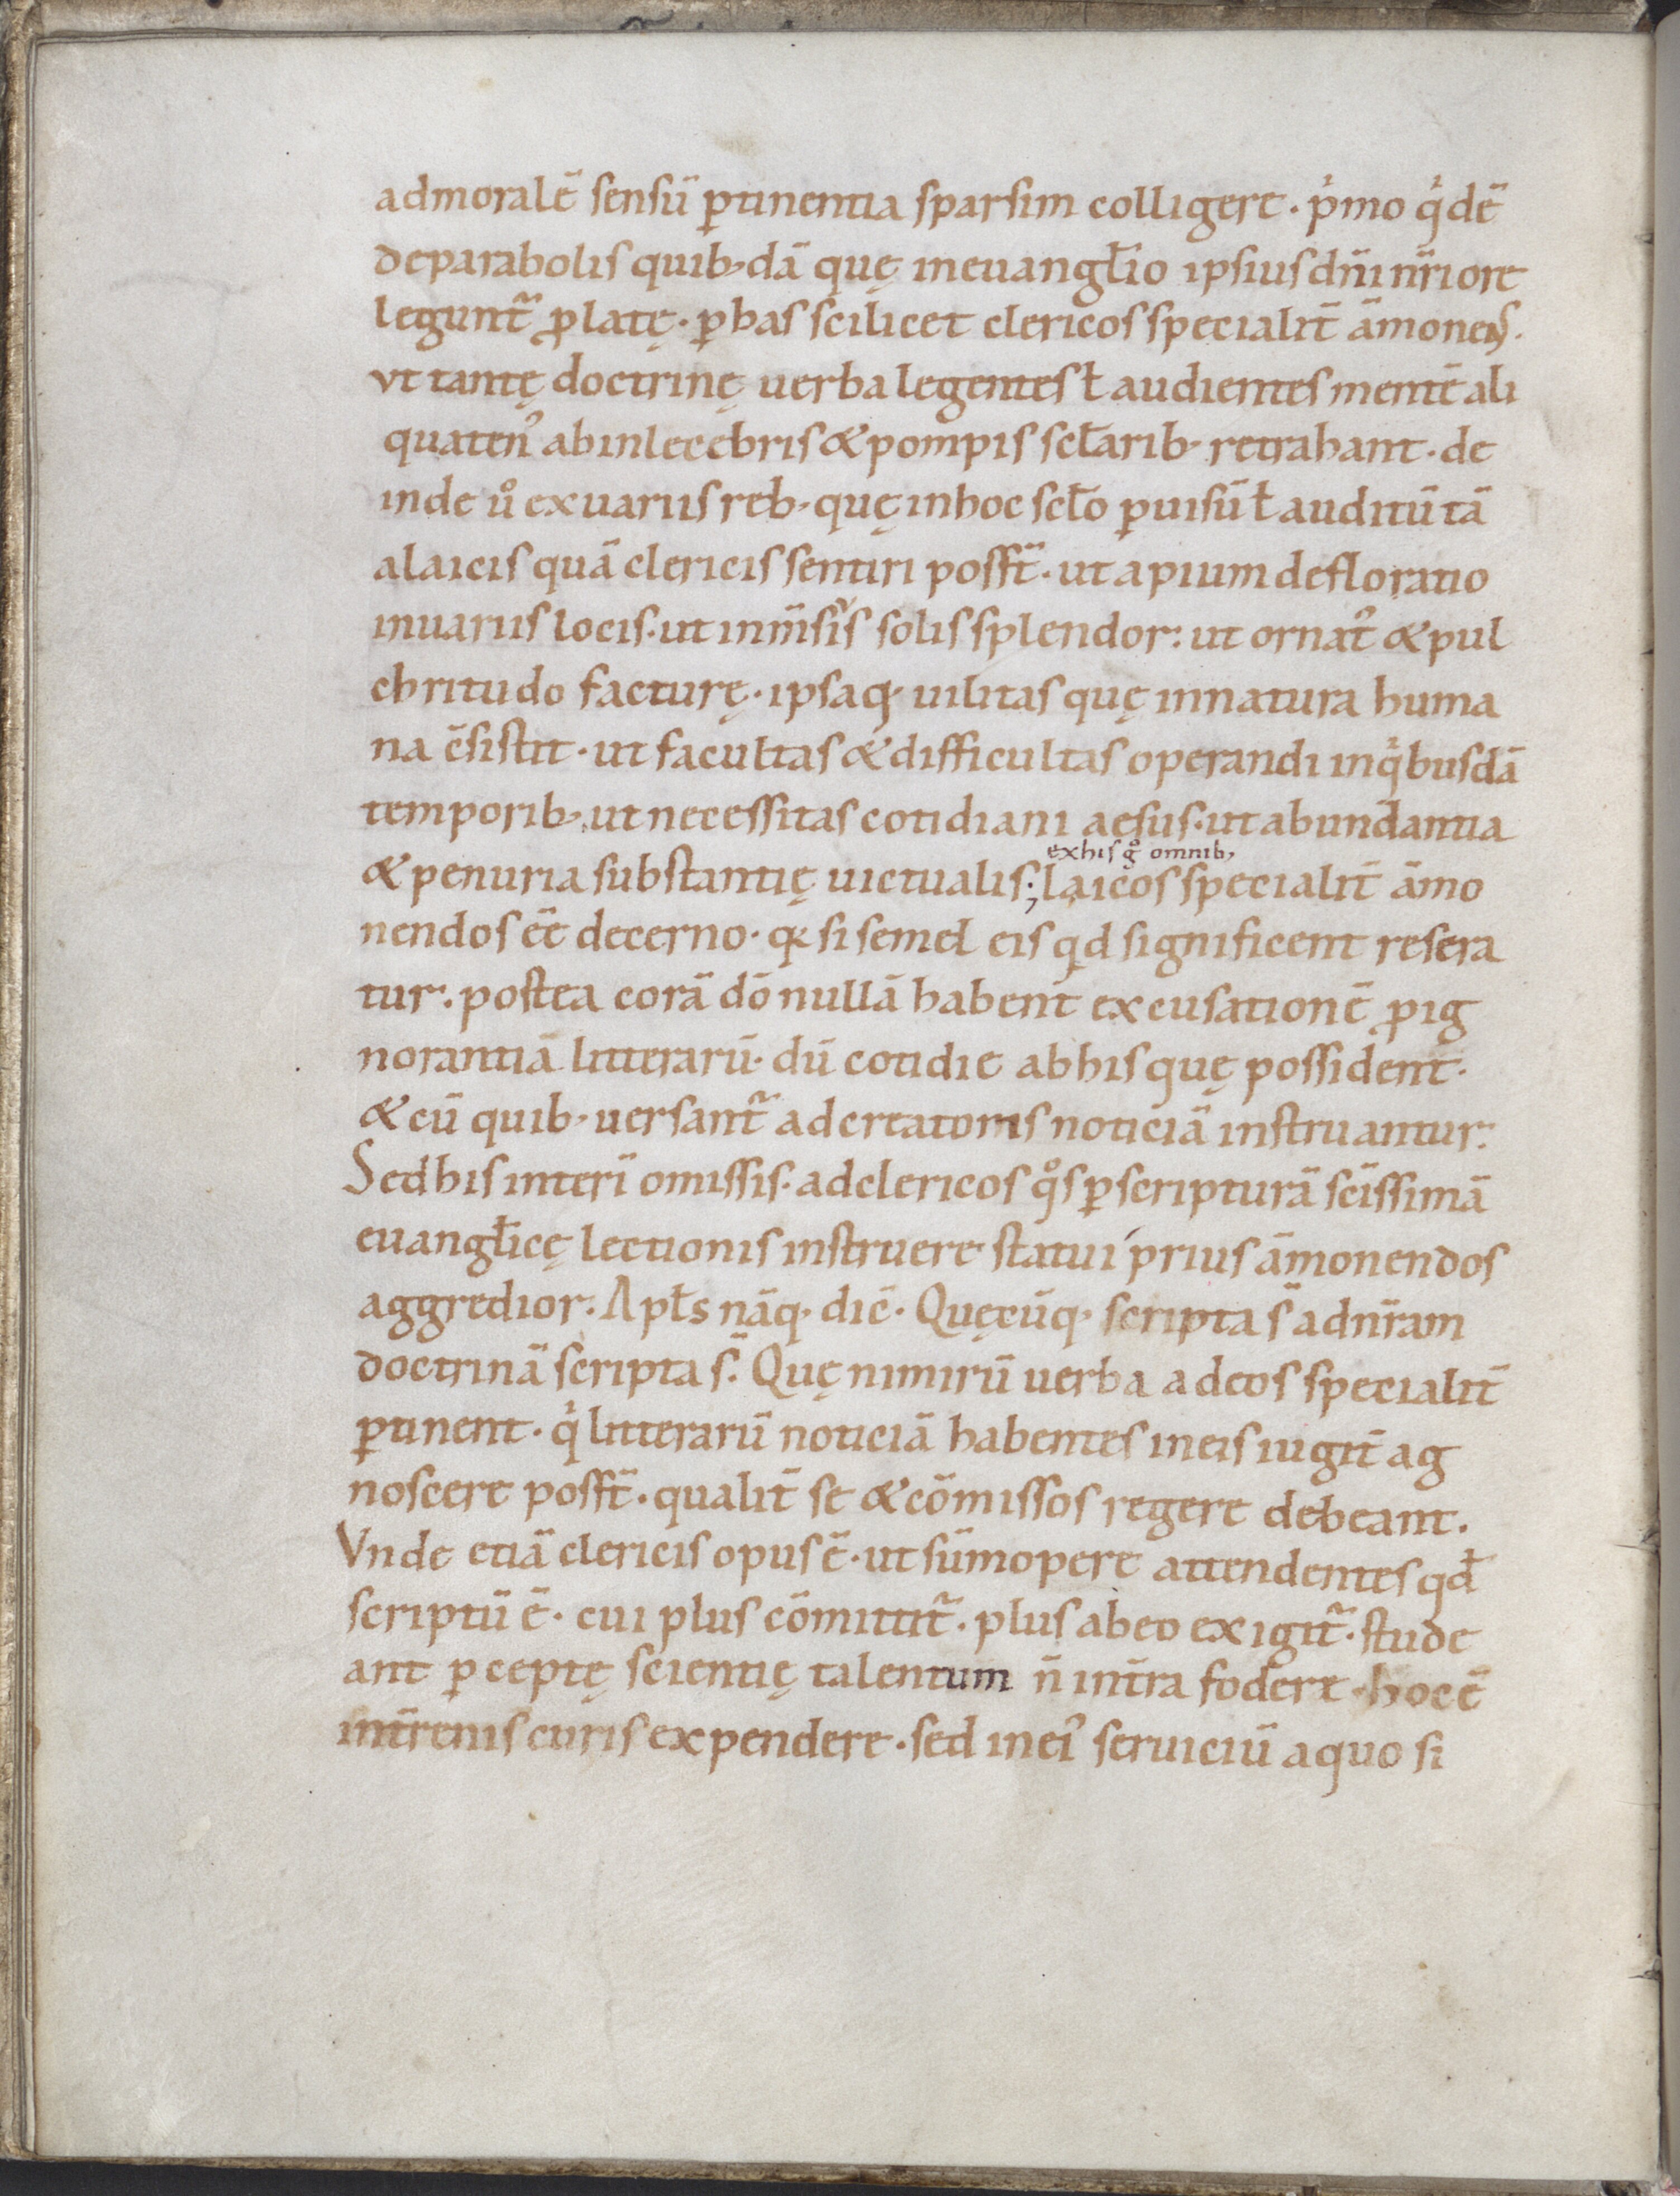 admoralē sensū ꝑtinentia sparsim colligere · pͥmo qͥdē
deparabolis quib; dā quę ineuangl̄io ipsius dn̄i nr̄i ore
legunt᷑ ꝓlatę · ꝑhas scilicet clericos specialit̄ āmonens ·
vt tantę doctrinę uerba legentes ł audientes mentē ali
quaten᾽ abinlecebris & pompis scl̄arib; retrahant · de
inde uͦ exuariis reb; quę inhoc scl̄o ꝑuisū ł auditū tā
alaicis quā clericis sentiri posst̄ · ut apium defloratio
inuariis locis · ut inm̄sis solis splendor : ut ornat᾽ & pul
chritudo facturę · ipsaq; uilitas quę innatura huma
na c̄sistit · ut facultas & difficultas operandi inqͥbusdā
temporib; ut necessitas cotidiani aesus · ut abundantia
exhis gͦ omnib;
& penuria substantię uictualis ; laicos specialit̄ āmo
nendos ēē decerno · q; si semel eis qd significent resera
tur : postea corā dō nullā habent excusationē ꝓ ig
norantiā litterarū · dū cotidie abhis quę possident ·
& cū quib; uersant᷑ adcreatoris noticiā instruantur :
Sed his interī omissis · adclericos qͦs ꝑscripturā sc̄issimā
euangl̄icę lectionis instruere statui prius āmonendos
aggredior : Apl̄s nāq; dic̄ · Quęcūq; scripta s̄ adnr̄am
doctrinā scripta s̄ · Quę nimirū uerba adeos specialit̄
ꝑtinent · qͥ litterarū noticiā habentes ineis iugit̄ ag
noscere posst̄ · qualit̄ se & cōmissos regere debeant ·
Vnde etiā clericis opus ē · ut sūmopere attendentes qd̄
scriptū ē · cui plus cōmittit᷑ · plus abeo exigit᷑ · stude
ant ꝑceptę scientię talentum n̄ int̄ra fodere · hoc ē
int̄renis curis expendere · sed inei᾽ seruiciū aquo si